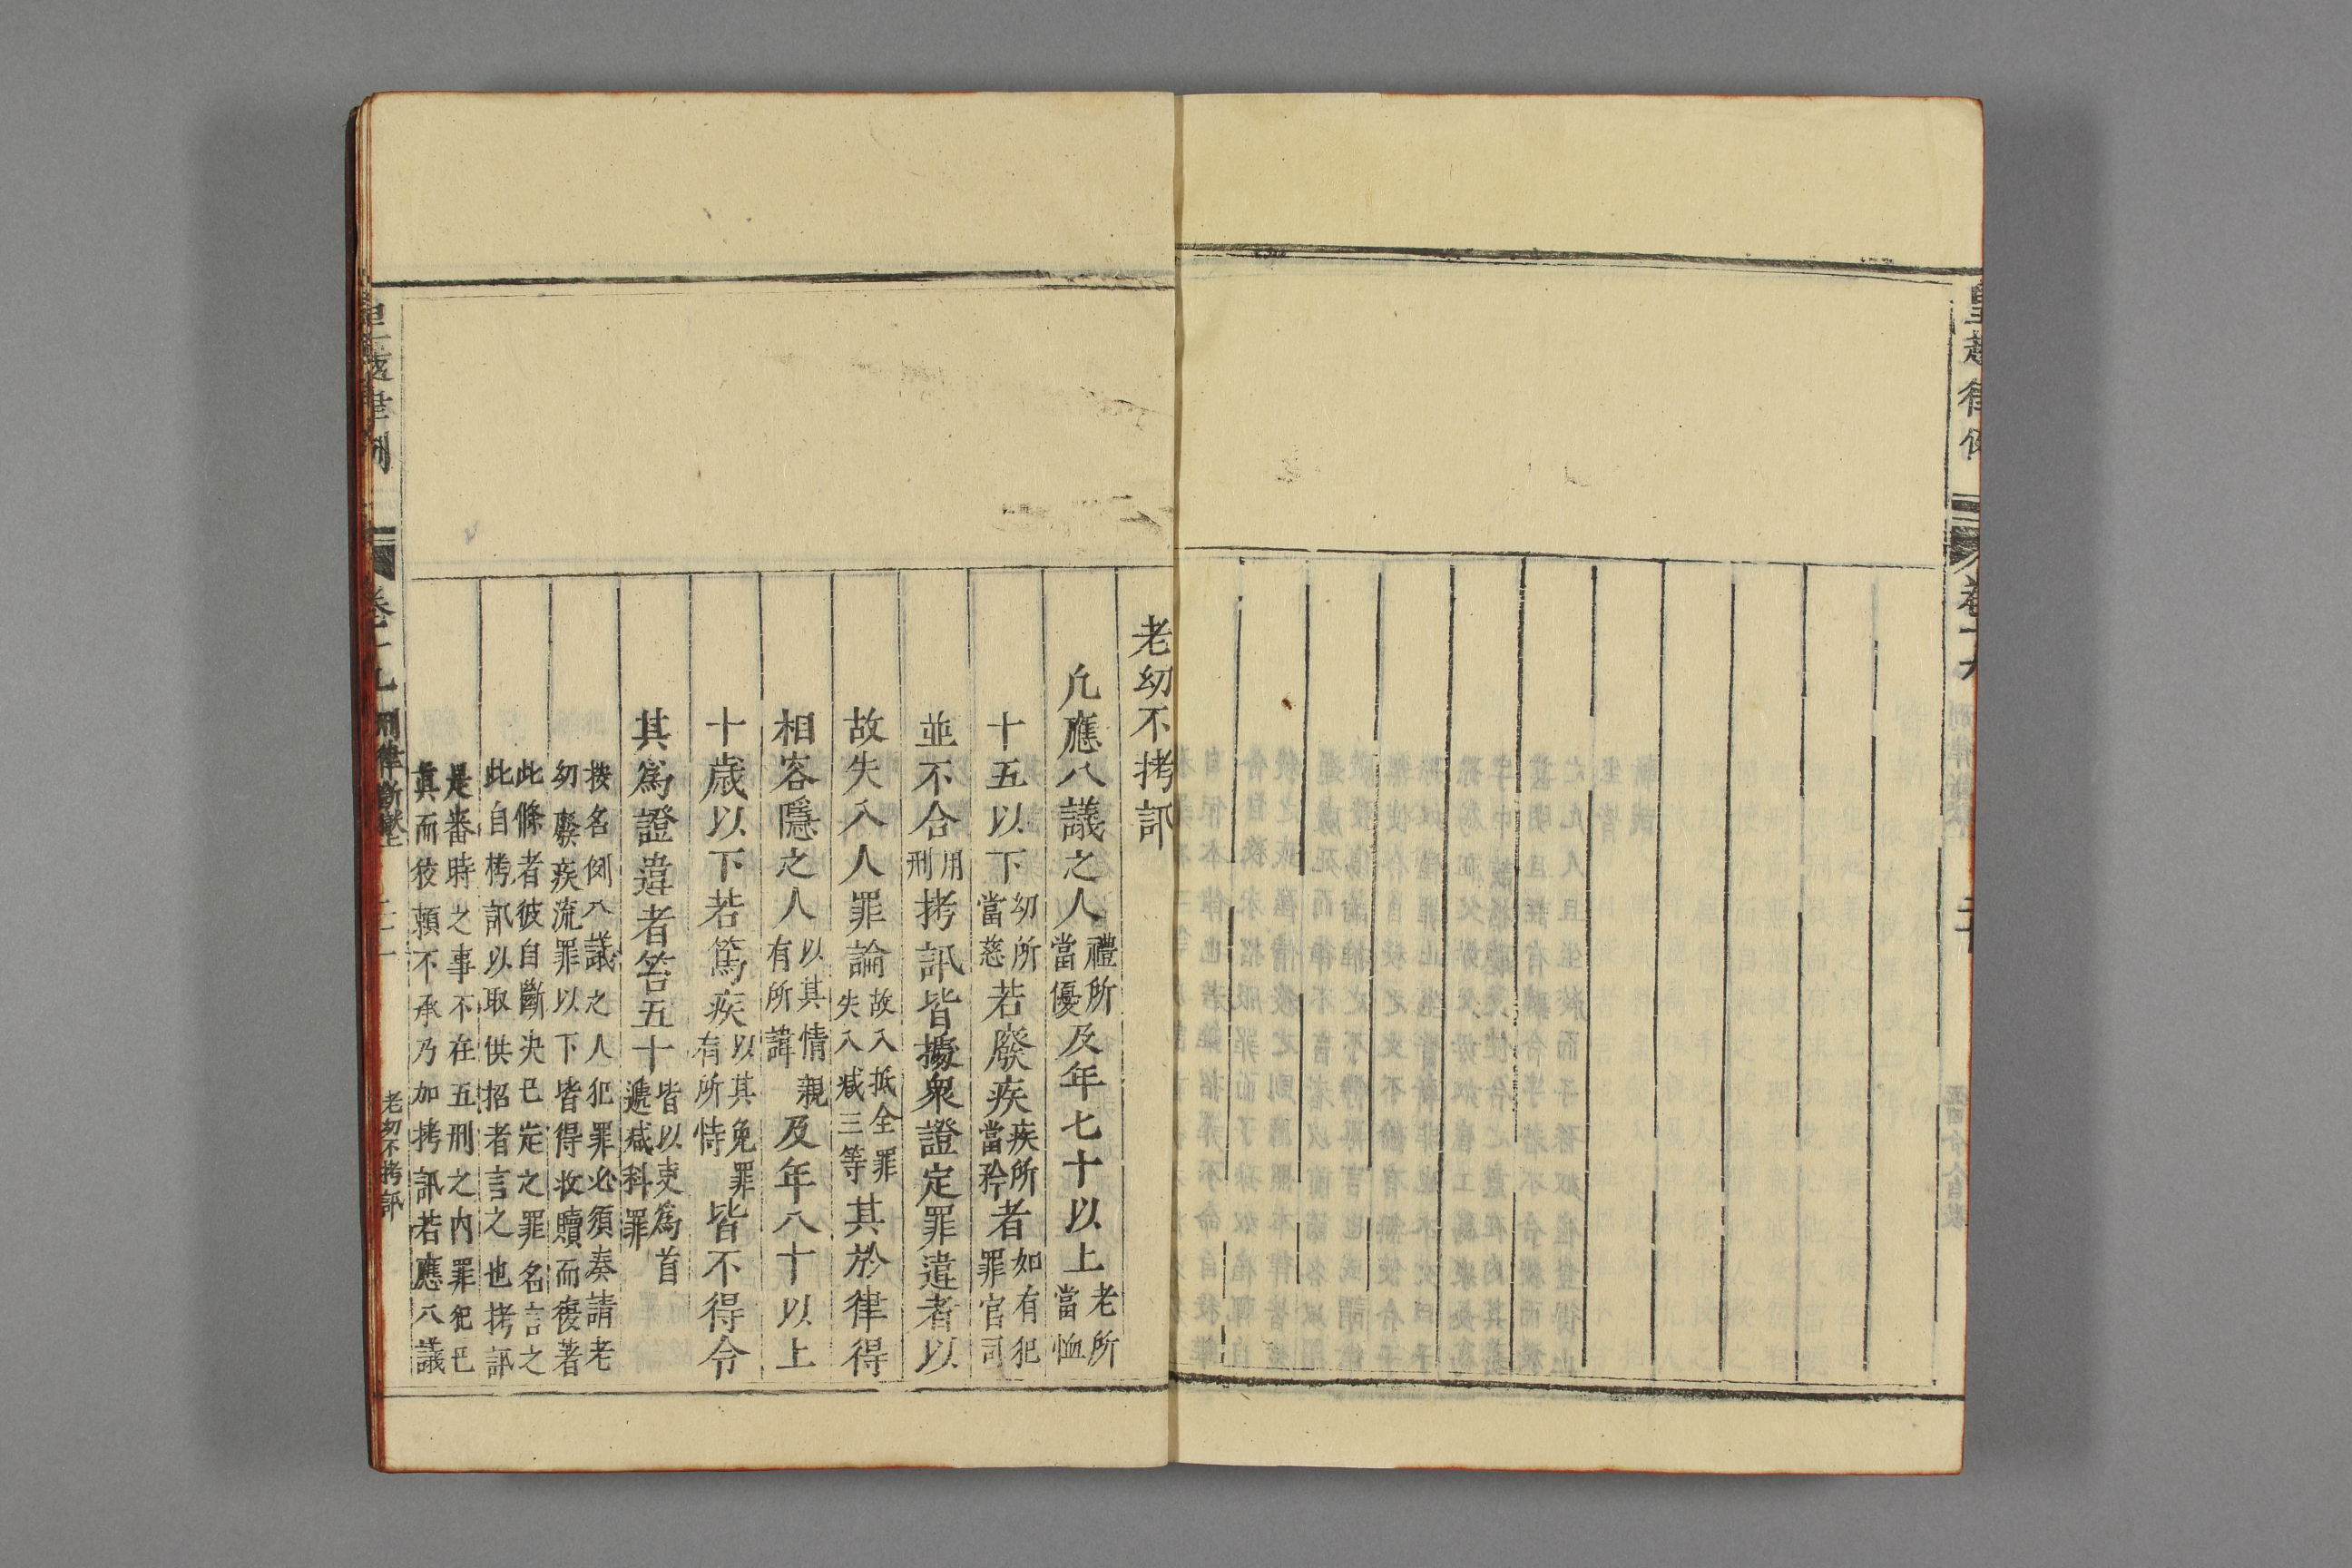 皇越律例 卷十九
老幼不拷訊
凢應八議之人禮所當優及年七十以上老所當恤
十五以下幼所當慈若廢疾疾所當矜者如有犯罪官司
並不合用刑拷訊皆據衆證定罪違者以
故失入人罪論故入抵全罪失入减三等其於律得
相容隱之人以其情親有所諱及年八十以上
十歲以下若篤疾以其免罪有所恃皆不得令
其爲證違者笞五十皆以吏爲首遞减科罪
按名例八議之人犯罪必須奏請老
幼廢疾流罪以下皆得收贖而復著
此條者彼自斷决已定之罪名言之
此自拷訊以取供招者言之也拷訊
是當時之事不在五刑之内罪犯已
眞而狡賴不承乃加拷訊若應八議
皇越律例 卷十九 刑律斷獄上 老幼不拷訊